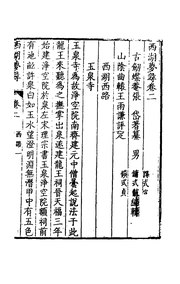 西湖夢尋卷二
古劍蝶菴張岱著
男
山陰曲轅王雨謙評定
西湖西路
玉泉寺
玉泉寺為故淨空院南齊建元中僧曇起說法于此
龍王來聽為之撫掌出泉遂建龍王祠晉天福三年
始建淨空院於泉左宋理宗書玉泉淨空院額祠前
有池畝許泉白如玉水望澄明淵無潛甲中有五色
西湖夢尋
卷二
西路